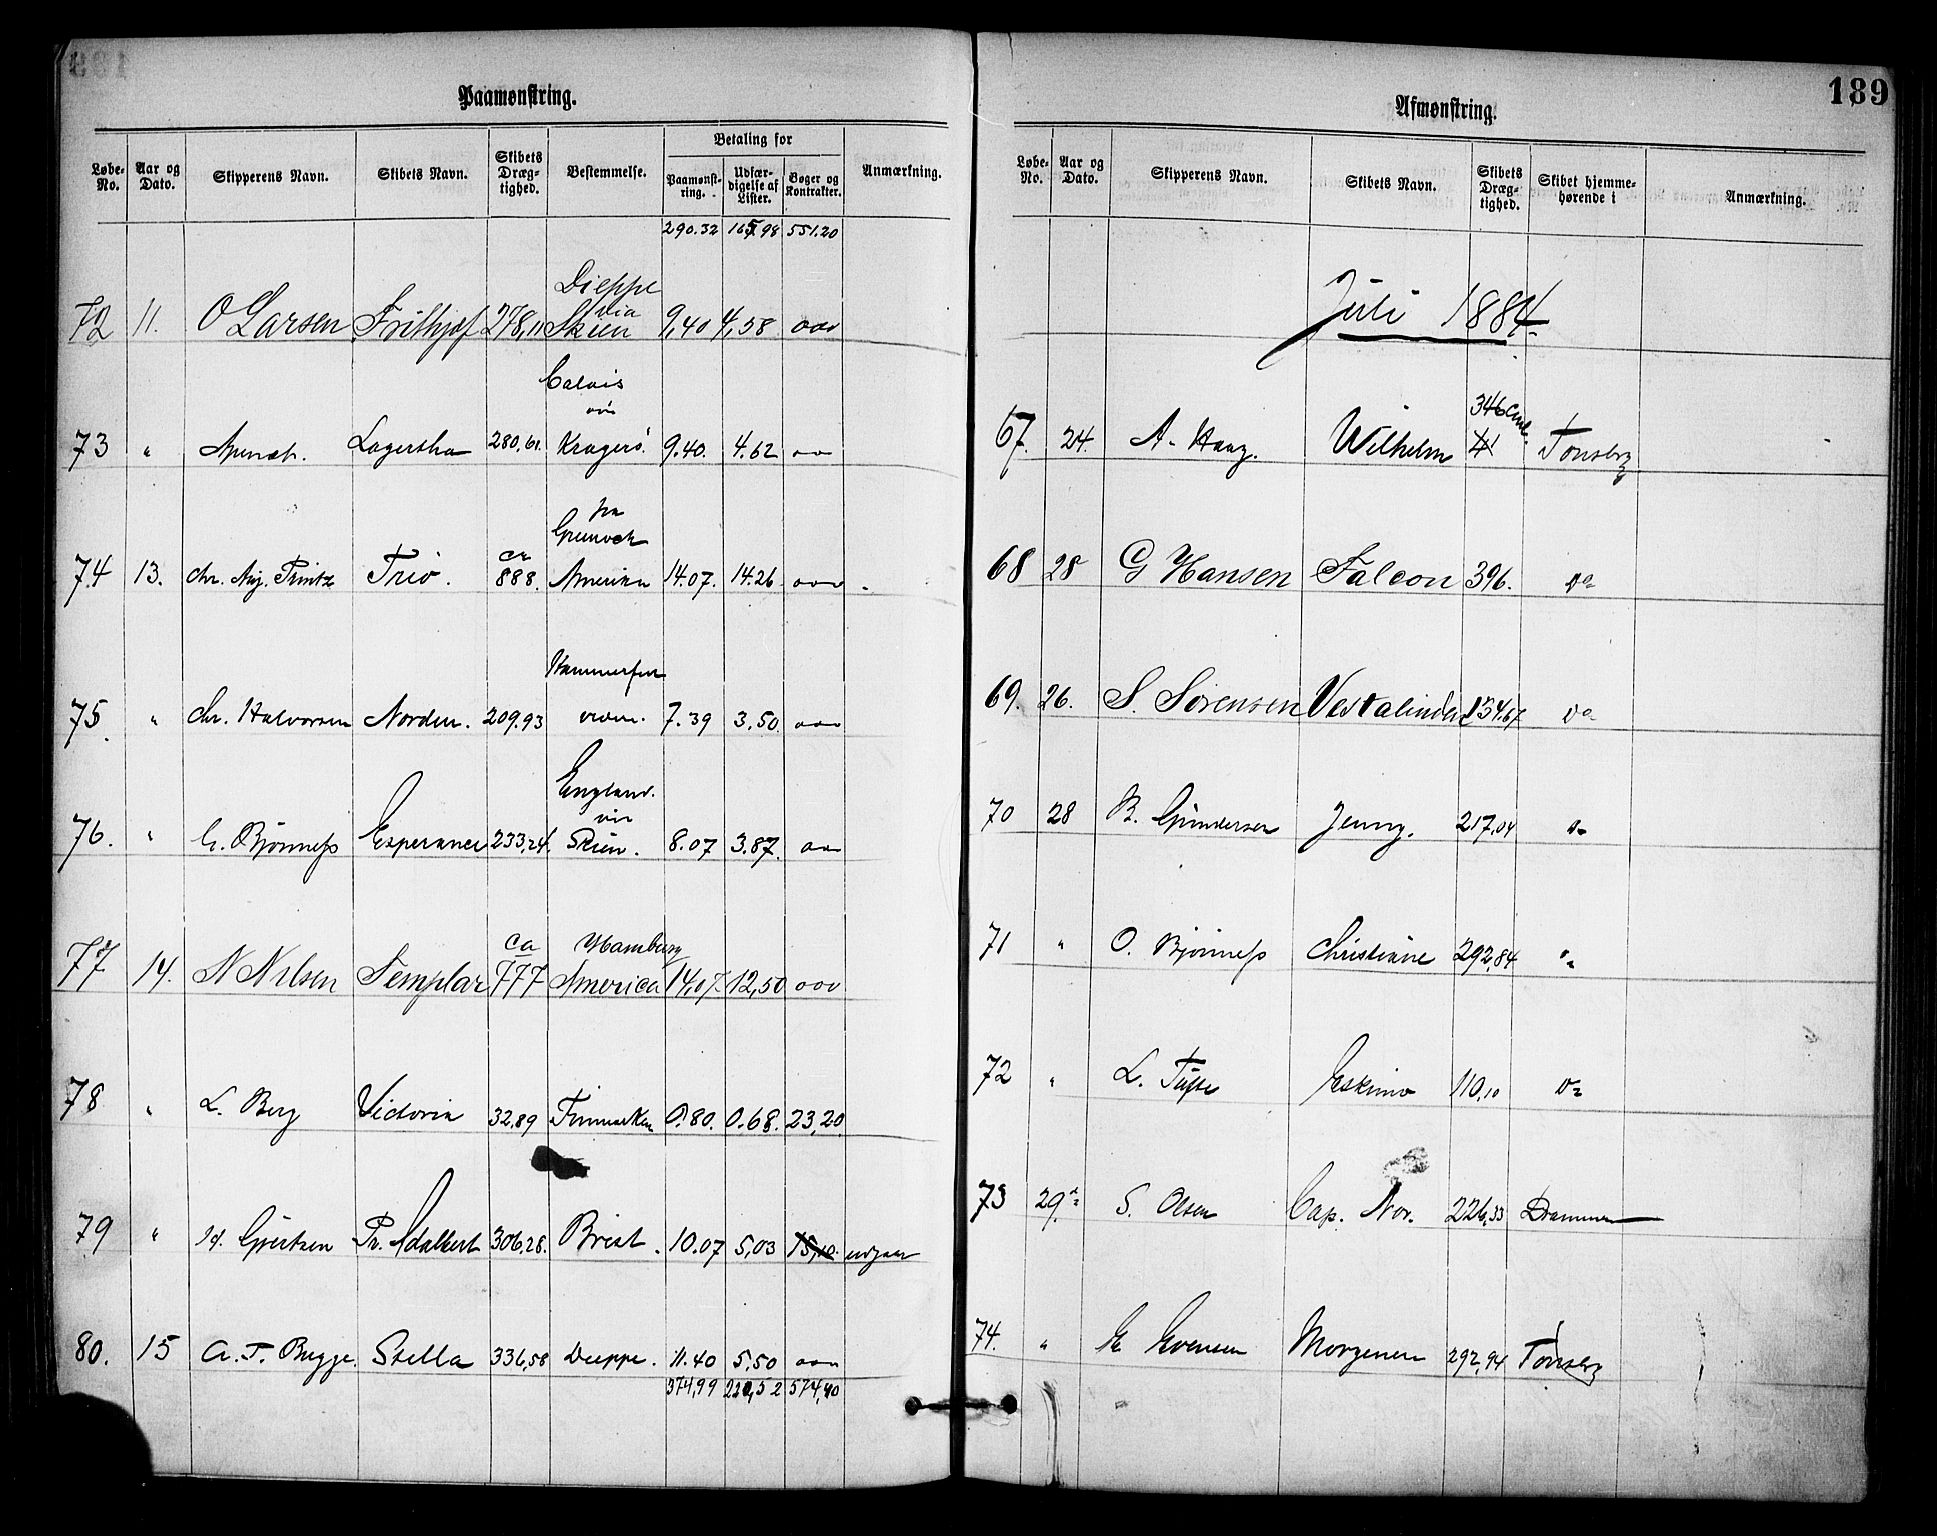 189
Paamønstring.
Løbe-No. Aar og Dato. Skipperens Navn. Skibets Navn. Skibets Dræg-tighed. Bestemmelse. Betaling for Paamønst-ring. Udfær-digelse af Lister. Bøger og Kontrakter. Anmærkning.
290.32 165.98 551.20
Dieppe
via
72 11. O Larsen Frithjof 278,11 Skien 9,40 4,58
Calais
via
73 " Lagertha 280,61. Kragerö. 9.40. 4.62
fra
Greenock
ca
74 13. Chr. Aug. Trio. 888. Amerika 14.07. 14.26
Hammerfest
75. " Chr. Halvorsen Norden. 209.93 7.39 3,50
England.
via
76. " Bjønness Esperance 233,24. Skien. 8.07 3.87.
ca Hamburg
77 14. N Nilsen Templar 777 America 14,07. 12,50
78 " L. Berg Victoria 32,89 Finmarken 0.80. 0.68. 23,20
79 " Gjertsen Pr. Adalbert 306,28. Brest. 10.07 5,03 15,10 udgaar
80. 15 A. T. Bugge. Stella 336,58 Dieppe. 11.40 5,50
374,99 220,52 574,40
Afmønstring.
189
Løbe-No. Aar og Dato. Skipperens Navn. Skibets Navn. Skibets Dræg-tighed. Skibet hjemme-hørende i Anmærkning.
Juli 1884
346
67. 24. A. Haag. Wilhelm Tønsberg
68 28 G Hansen Falcon 396. Do
69. 26. S. Sørensen Vestalinden 234.67 Do
70 28 B. Gundersen Jenny. 217,04 Do
71 " O. Bjønness Christiane 292,84 "
72 " L. Tufte Eskimo 110,10 Do
73 29. S. Olsen Cap. Nor. 226,33 Drammen
74. " E Evensen Morgenen 292,94 Tønsberg